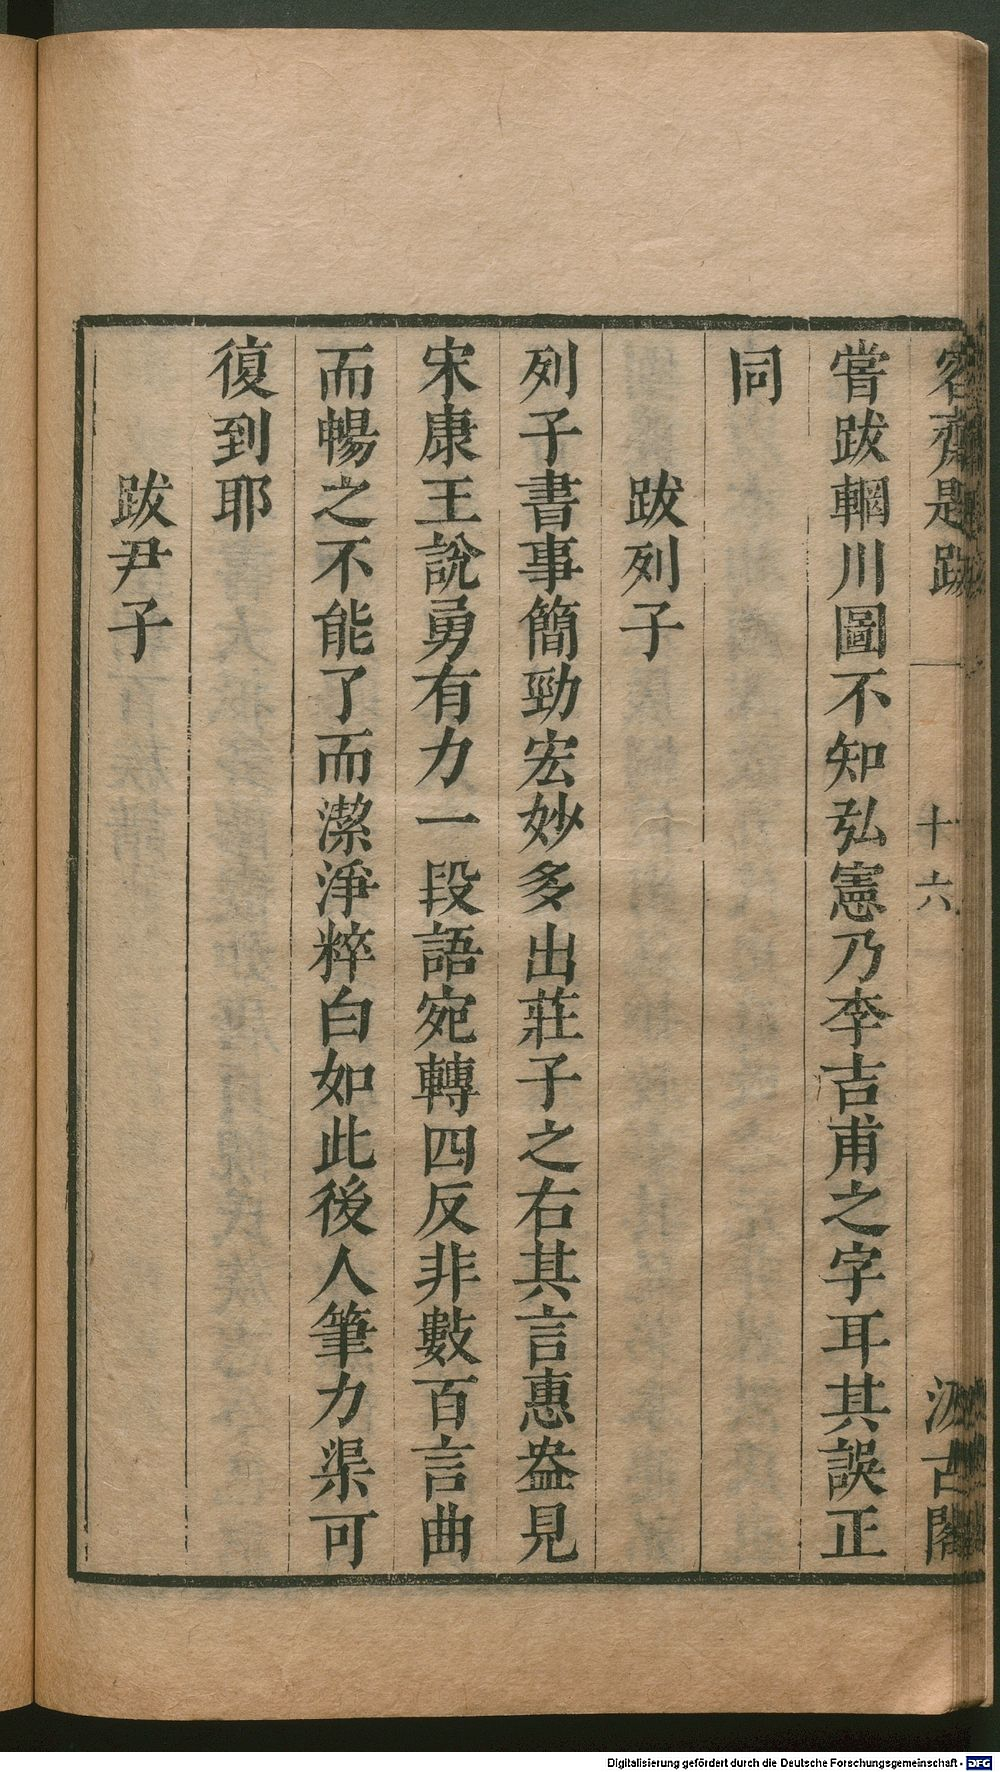 容齋題跋
十六
汲古閣
嘗跋輞川圖不知弘憲乃李吉甫之字耳其誤正
同
跋列子
列子書事簡勁宏妙多出莊子之右其言惠盎見
宋康王說勇有力一段語宛轉四反非數百言曲
而暢之不能了而潔淨粹白如此後人筆力渠可
復到耶
跋尹子
Digitalisierung gefördert durch die Deutsche Forschungsgemeinschaft - DFG